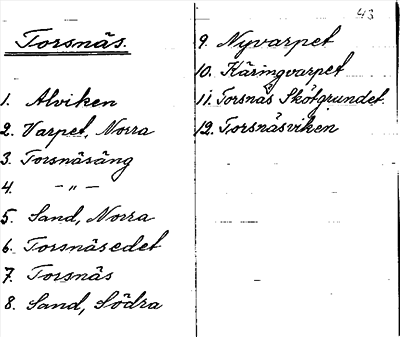 43
Torsnäs.
1. Alviken
2. Varpet, Norra
3. Torsnäsäng
4. — " —
5. Sand, Norra
6. Torsnäsedet
7. Torsnäs
8. Sand, Södra
9. Nyvarpet
10. Käringvarpet
11. Torsnäs Skötgrundet.
12. Torsnäsviken